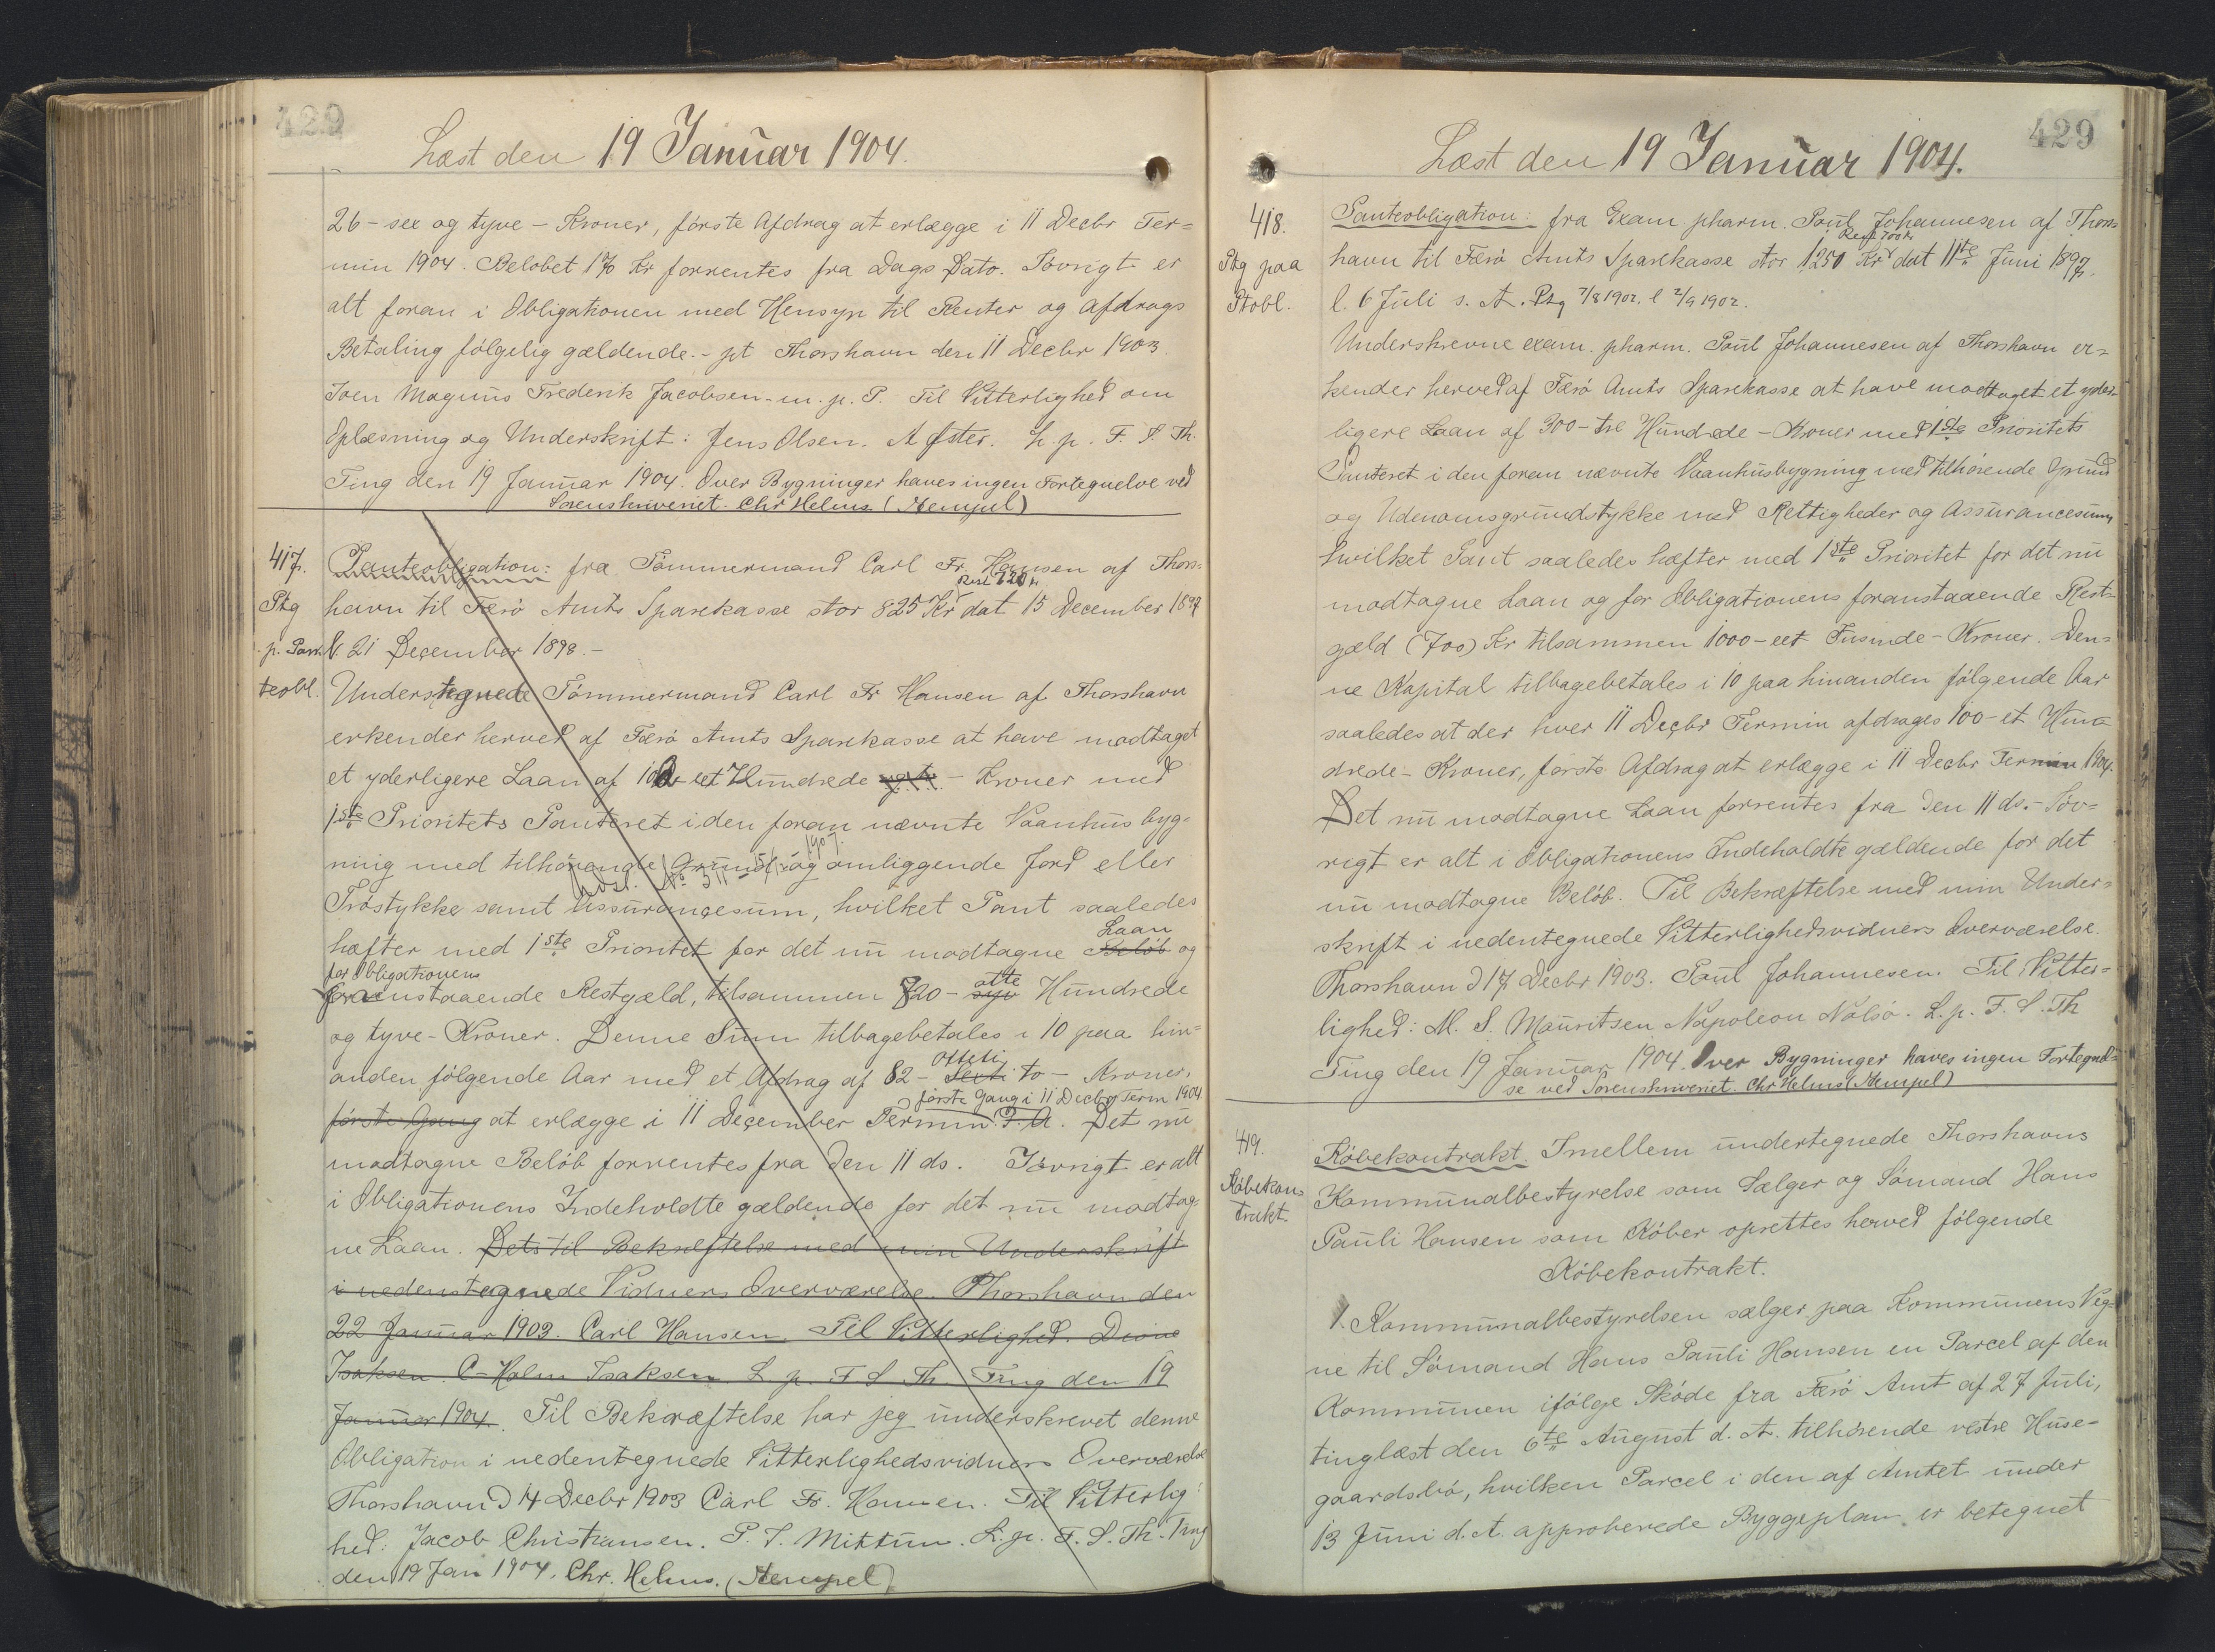 429
Læst den 19 Januar 1904.
26 - sex og tyve - Kroner, første Afdrag at erlægge i 11 Decbr Ter=
min 1904. Beløbet 170 Kr forrentes fra Dags Dato. Iøvrigt er
alt foran i Obligationen med Hensyn til Renter og Afdrags
Betaling følgelig gældende. - pt Thorshavn den 11 Decbr 1903.
Joen Magnus Frederik Jacobsen - m. p. P. Til Vitterlighed om
Oplæsning og Underskrift: Jens Olsen. A Øster. L. p. F. S. Th.
Ting den 19 Januar 1904. Over Bygninger haves ingen Fortegnelse ved
Sorenskriveriet. Chr Helms. (Stempel)
417.
Ptg
p. Pan
teobl.
Panteobligation: fra Tømmermand Carl Fr. Hansen af Thors=
Rest 720 Kr
havn til Færø Amts Sparekasse stor 825 Kr dat 15 December 1897
l. 21 December 1898. -
Understegnede Tømmermand Carl Fr Hansen af Thorshavn
erkender herved af Færø Amts Sparekasse at have modtaget
et yderligere Laan af 100 - et Hundrede - Kroner med
1ste Prioritets Panteret i den foran nævnte Vaanhus byg=
ning med tilhørende Grund og omliggende Jord eller
1907.
Udsl. No 311
Trøstykke samt Assurancesum, hvilket Pant saaledes
hæfter med 1ste Prioritet for det nu modtagne Beløb og
Laan
for Obligationens
foranstaaende Restgæld, tilsammen 820 - syv Hundrede
otte
og tyve - Kroner. Denne Sum tilbagebetales i 10 paa hin=
anden følgende Aar med et Afdrag af 82 - to - Kroner,
otteti
første Gang i 11 Decbr Term 1904
første Gang at erlægge i 11 December Termin F. A. Det nu
modtagne Beløb forrentes fra den 11 ds. Iøvrigt er alt
i Obligationens Indeholdte gældende for det nu modtag=
ne Laan. Dets til Bekræftelse med min Underskrift
i nedenstegnede Vidners Overværelse. Thorshavn den
22 Januar 1903. Carl Hansen. Til Vitterlighed.
Isaksen. C - Holm Isaksen L p. F S Th Ting den 19
Januar 1904. Til Bekræftelse har jeg underskrevet denne
Obligation i nedentegnede Vitterlighedsvidners Overværelse
Thorshavn D 14 Decbr 1903 Carl Fr. Hansen. Til Vitterlig=
hed: Jacob Christiansen. P. S. Mikkun. L. p. F. S. Th. Ting
den 19 Jan 1904. Chr. Helms. (Stempel)
429
Læst den 19 Januar 1904.
418.
Ptg paa
Ptobl.
Panteobligation: fra Exam. pharm. Poul Johannesen af Thors=
Rest 700 Kr
havn til Færø Amts Sparekasse stor 1250 Kr dat 11te Juni 1897.
l. 6 Juli s. A. Ptg 7/8 1902. l 2/9 1902.
Underskrevne exam. pharm. Poul Johannesen af Thorshavn er=
kender herved af Færø Amts Sparekasse at have modtaget et yder=
ligere Laan af 300 - tre Hundrede - Kroner med 1ste Prioritets
Panteret i den foran nævnte Vaanhusbygning med tilhørende Grund
og Udenomsgrundstykke med Rettigheder og Assurancesum
hvilket Pant saaledes hæfter med 1ste Prioritet for det nu
modtagne Laan og for Obligationens foranstaaende Rest=
gæld (700) Kr tilsammen 1000 - eet Tusinde - Kroner. Den=
ne Kapital tilbagebetales i 10 paa hinanden følgende Aar
saaledes at der hver 11 Decbr Termin afdrages 100 - et Hun=
drede - Kroner, første Afdrag at erlægge i 11 Decbr Termin 1904.
Det nu modtagne Laan forrentes fra den 11 ds. - Iøv=
rigt er alt i Obligationens Indeholdte gældende for det
nu modtagne Beløb. Til Bekræftelse med min Under=
skrift i nedentegnede Vitterlighedsvidners Overværelse.
Thorshavn D 17 Decbr 1903. Poul Johannesen. Til Vitter=
lighed: M. S. Mauritsen Napoleon Nolsø. L. p. F. S. Th
Ting den 19 Januar 1904. Over Bygninger haves ingen Fortegnel=
se ved Sorenskriveriet. Chr Helms (Stempel)
419.
Købekon
trakt.
Købekontrakt. Imellem undertegnede Thorshavns
Kommunalbestyrelse som Sælger og Sømand Hans
Pauli Hansen som Køber oprettes herved følgende
Købekontrakt.
1. Kommunalbestyrelsen sælger paa Kommunens Veg=
ne til Sømand Hans Pauli Hansen en Parcel af den
Kommunen ifølge Skøde fra Færø Amt af 27 Juli,
tinglæst den 6te August d. A. tilhørende vestre Huse-
gaardsbø, hvilken Parcel i den af Amtet under
13 Juni d. A. approberede Byggeplan er betegnet